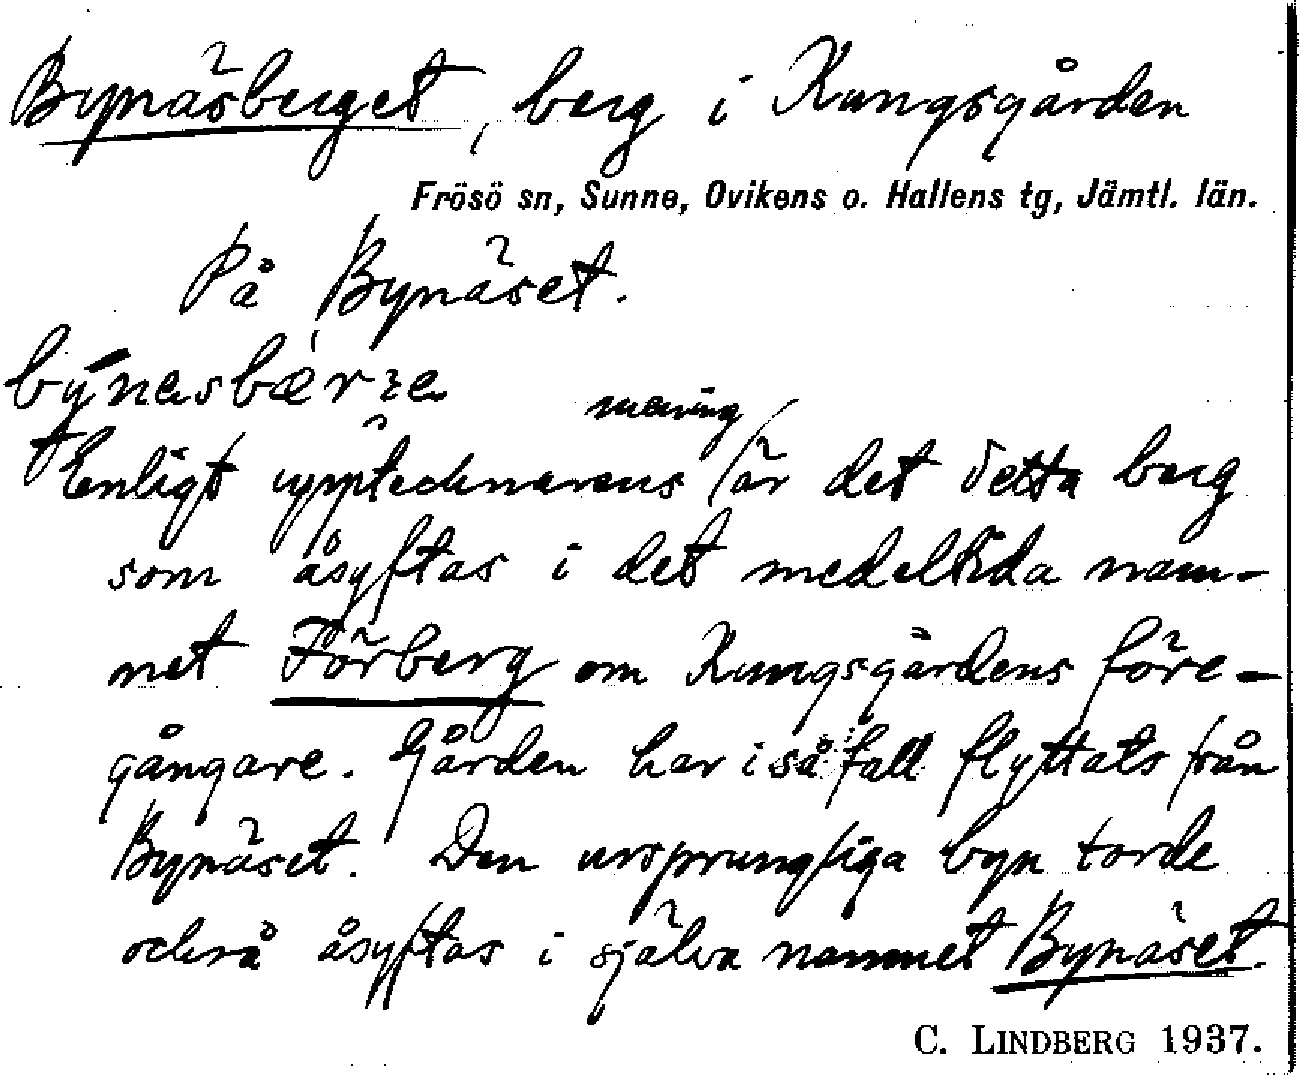 Bynäsberget, berg i Kungsgården
Frösö sn, Sunne, Ovikens o. Hallens tg, Jämtl. län.
På Bynäset.
Enligt upptecknarens mening är det detta berg
som åsyftas i det medeltida nam-
net Förberg om Kungsgårdens före-
gångare. Gården har i så fall flyttats från
Bynäset. Den ursprungliga byn torde
också åsyftas i själva namnet Bynäset.
C. LINDBERG 1937.